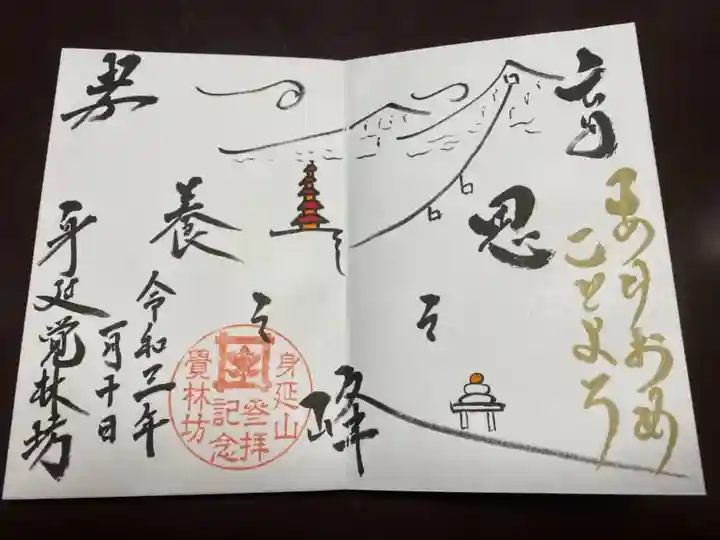 あけおめ
ことよろ
之
峰
養
之
令和三年
一月十日
身延覚林坊
身延山
参拝
記念
覺林坊